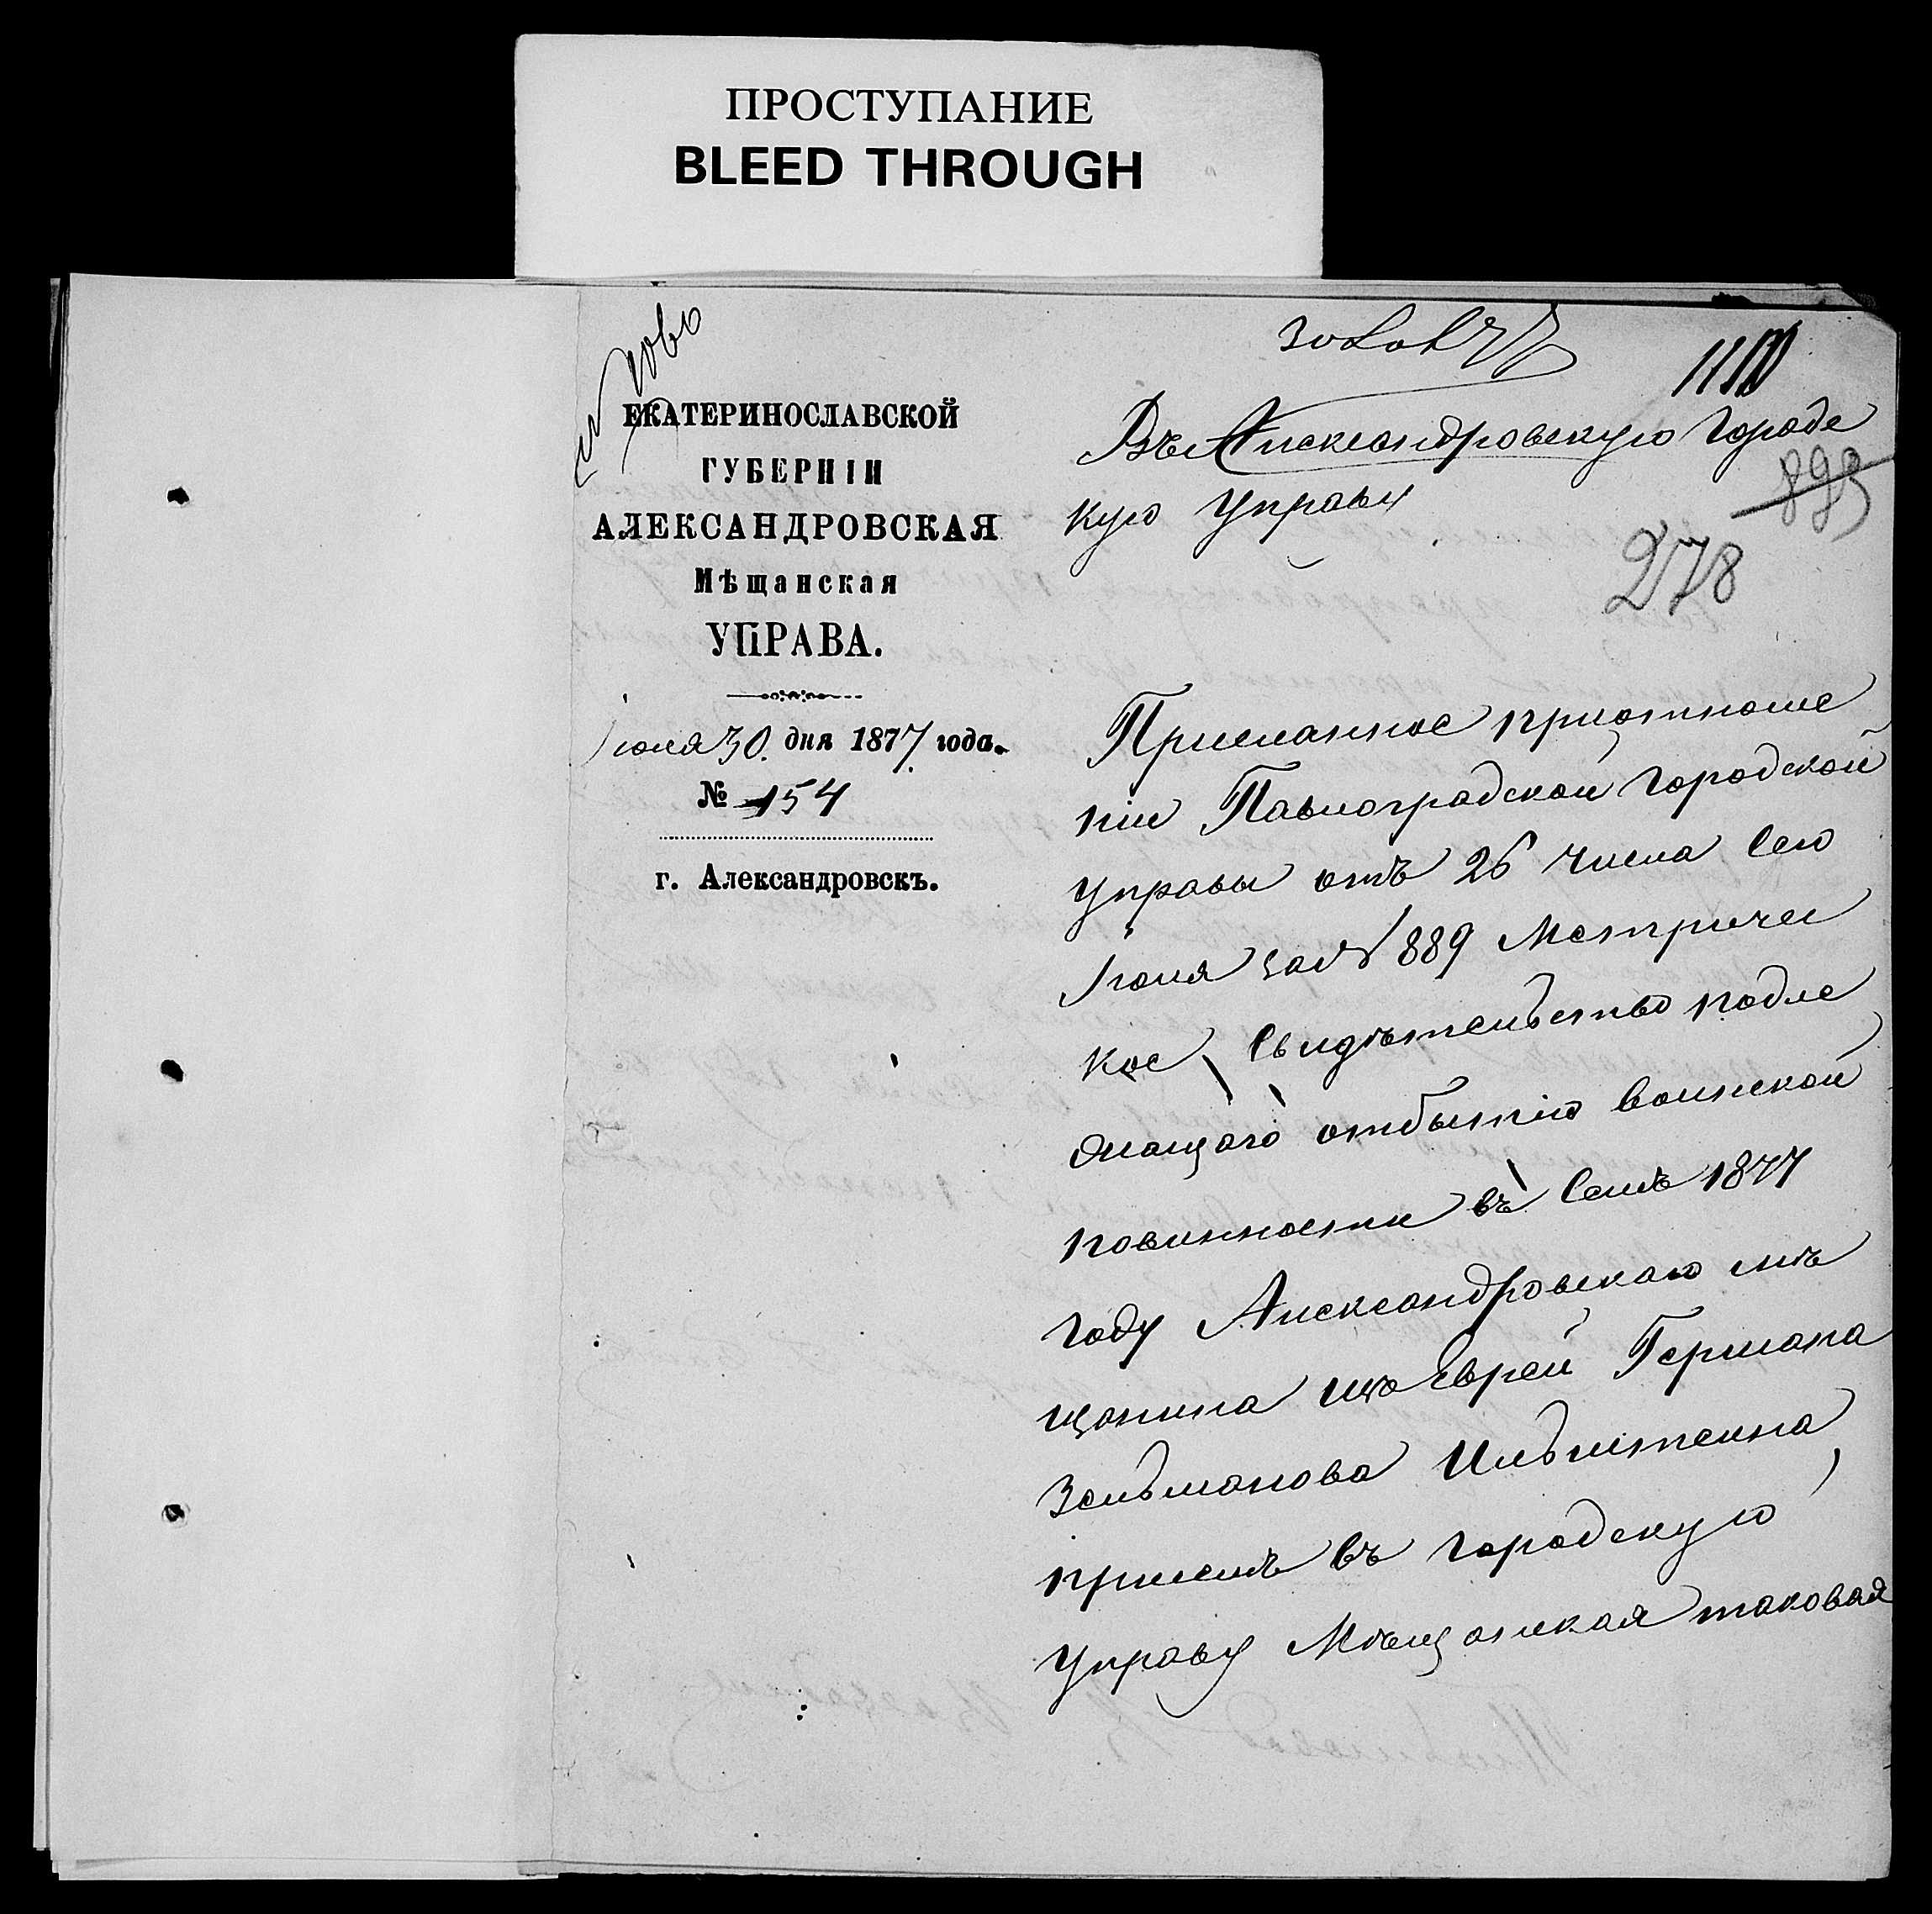 ПРОСТУПАНИЕ
BLEED THROUGH
ЕКАТЕРИНОСЛАВСКОЙ
ГУБЕРНІИ
АЛЕКСАНДРОВСКАЯ
Мѣщанская
УПРАВА.
Іюня 30 дня 1877 года.
№ 154
г. Александровскъ.
Въ Александровскую Городс
кую Управу
893
278
Присланное приотноше
ніи Павлоградской Городской
Управы отъ 26 числа сего
Іюня за № 889 Метричес
кое Свидѣтельство подле
жащаго отбытію воинской
повинности въ семъ 1877
году Александровскаго мѣ
щанина изъ Еврей Германа
Зельманова Ильштеина
пріемъ въ городскую
Управу Мѣщанская таковая